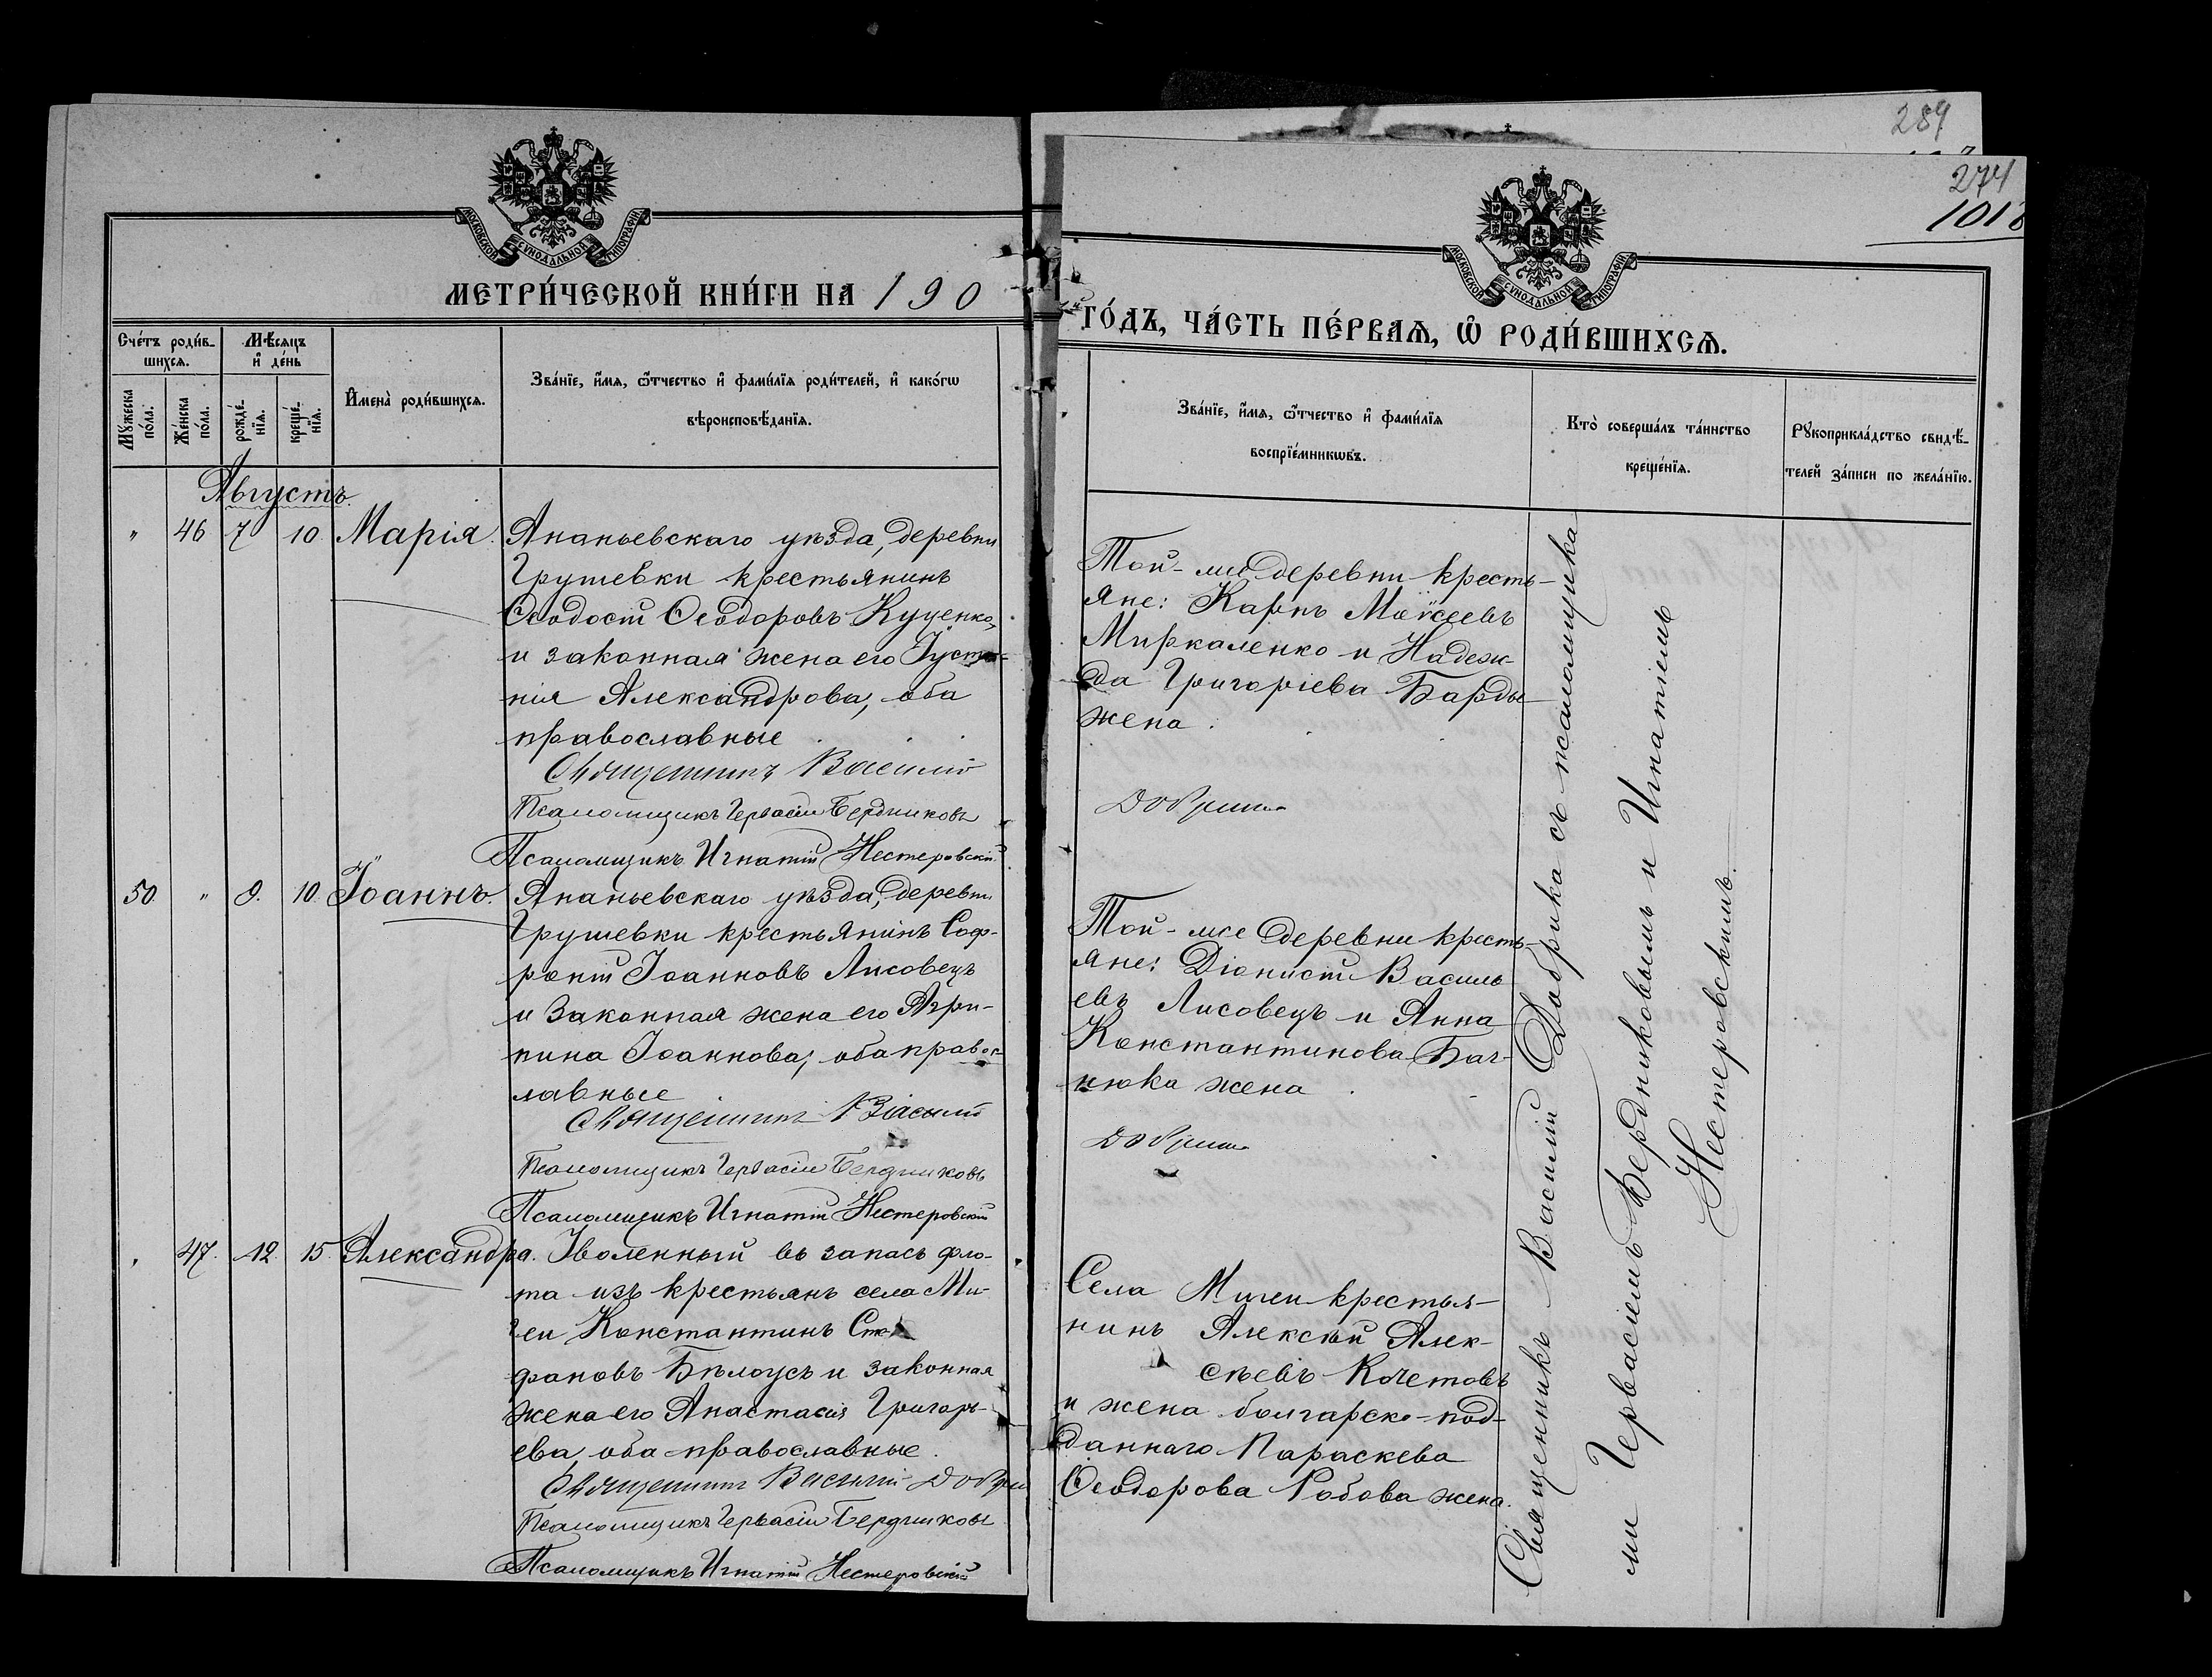 289
274
1018
МОСКОВСКОЙ СУНОДАЛЬНОЙ ТИПОГРАФІИ
МЕТРИ́ЧЕСКОЙ КНИ́ГИ НА 190
Сче́тъ роди́в-
шихся.
Мѣ́сяцъ
и҆ де́нь
Мꙋ́жеска
по́ла.
Же́нска
по́ла.
рожде́-
нїя.
креще́-
нїя.
И҆мена̀ роди́вшихся.
Зва́нїе, и҆́мя, ѻ҆́тчество и҆ фами́лїя роди́телей, и҆ како́гѡ
вѣроисповѣ́данїя.
Августъ
" 46 7 10 Марія.
Ананьевскаго уѣзда, деревни
Грушевки крестьянинъ
Ѳеодосій Ѳеодоровъ Куценко,
и законная жена его Іусти-
нія Александрова, оба
православные
Священникъ Василій
Псаломщикъ Гервасій Бердниковъ
Псаломщикъ Игнатій Нестеровскій
50. " 9. 10. Іоаннъ.
Ананьевскаго уѣзда, деревни
Грушевки крестьянинъ Соф-
роній Іоанновъ Лисовецъ
и законная жена его Агри-
пина Іоаннова, оба правос-
лавные
Священникъ Василій
Псаломщикъ Гервасій Бердниковъ
Псаломщикъ Игнатій Нестеровскій
" 47. 12. 15. Александра.
Уволенный въ запасъ фло-
та изъ крестьянъ села Ми-
геи Константинъ Сте-
фановъ Бѣлоусъ и законная
жена его Анастасія Григорь-
ева, оба православные.
Священникъ Василій Добри
Псаломщикъ Гервасій Бердниковъ
Псаломщикъ Игнатій Нестеровскій
МОСКОВСКОЙ СУНОДАЛЬНОЙ ТИПОГРАФІИ
ГО́ДЪ, ЧА́СТЬ ПЕ́РВАЯ, Ѡ҆ РОДИ́ВШИХСЯ.
Зва́нїе, и҆́мя, ѻ҆́тчество и҆ фами́лїя
воспрїе́мникѡвъ.
Кто̀ соверша́лъ та́инство
креще́нїя.
Рꙋкоприкла́дство свидѣ́-
телей за́писи по жела́нїю.
Той-же деревни кресть-
яне: Карпъ Моѵсеевъ
Миркаленко и Надеж-
да Григоріева Барды
жена.
Добрика
Той-же деревни кресть-
яне: Діонисій Василь
евъ Лисовецъ и Анна
Константинова Баг-
нюка жена
Добрика
Села Мигеи крестья-
нинъ Алексѣй Алек-
сѣевъ Кочетовъ
и жена болгарско-под-
даннаго Параскева
Ѳеодорова Робова жена.
Священникъ Василій Добрика съ псаломщика
ми Гервасіемъ Бердниковымъ и Игнатіемъ
Нестеровскимъ.